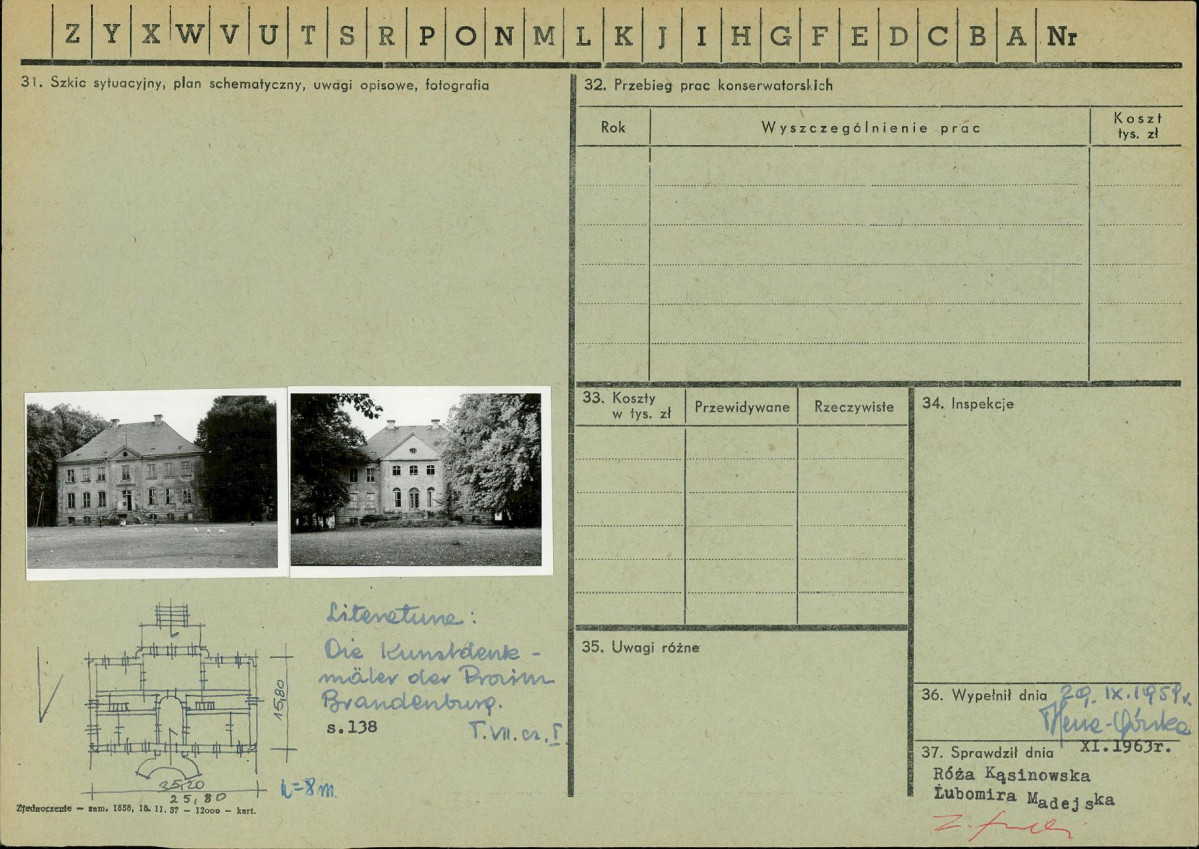 Z Y X W V U T S R P O N M L K J I H G F E D C B A Nr
31. Szkic sytuacyjny, plan schematyczny, uwagi opisowe, fotografia
32. Przebieg prac konserwatorskich
Rok
Wyszczególnienie prac
Koszt
tys. zł
33. Koszty
w tys. zł
Przewidywane
Rzeczywiste
34. Inspekcje
Literatura:
Die Kunstdenk-
mäler der Provinz
Brandenburg.
s.138
T.VII.cz.I
15,80
25,20
25,80
h=8m.
Zjednoczenie — zam. 1858, 18. 11. 57 — 12000 — kart.
35. Uwagi różne
36. Wypełnił dnia 29.IX.1959r.
37. Sprawdził dnia XI.1963r.
Róża Kąsinowska
Łubomira Madejska